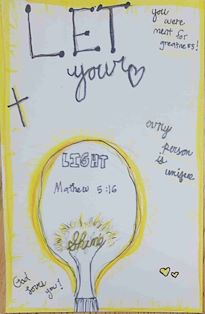 LET
your
you
were
meant for
greatness!
every
person
is
unique
LIGHT
Mathew 5:16
Shine
God
loves you!